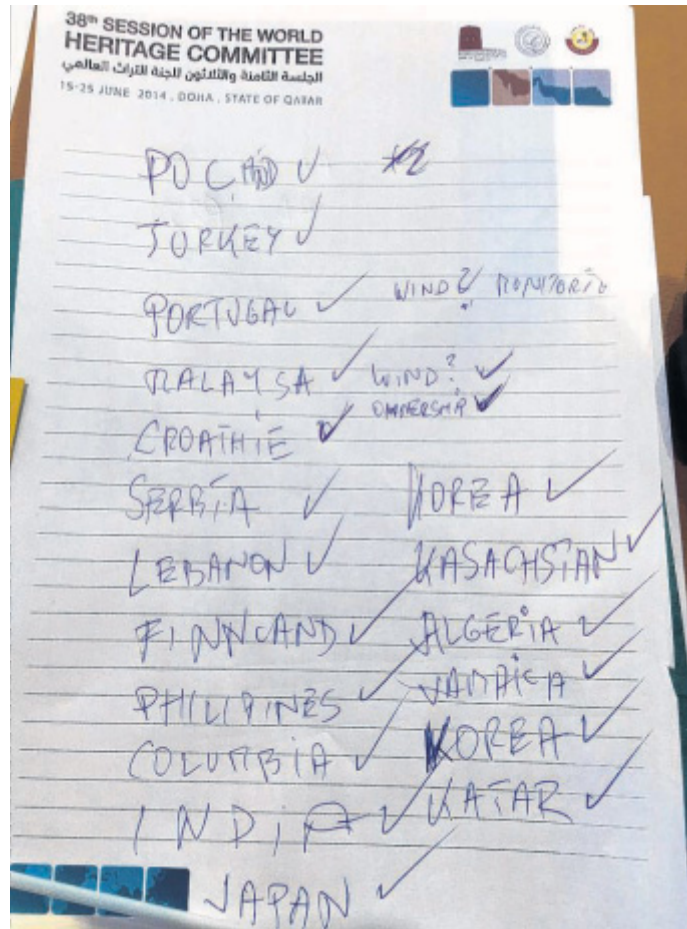 38th SESSION OF THE WORLD
HERITAGE COMMITTEE
الجلسة الثامنة والثلاثون للجنة التراث العالمي
15-25 JUNE 2014, DOHA, STATE OF QATAR
TURKEY ✓
PORTUGAL ✓ WIND?
MALAYSA ✓ WIND? ✓
OWNERSHIP ✓
CROATHIE ✓
SERBIA ✓
LEBANON ✓
FINNLAND ✓
PHILIPINES ✓
COLUMBIA ✓
INDIA ✓
JAPAN ✓
KOREA ✓
KASACHSTAN ✓
ALGERIA ✓
JAMAICA ✓
KOREA ✓
KATAR ✓